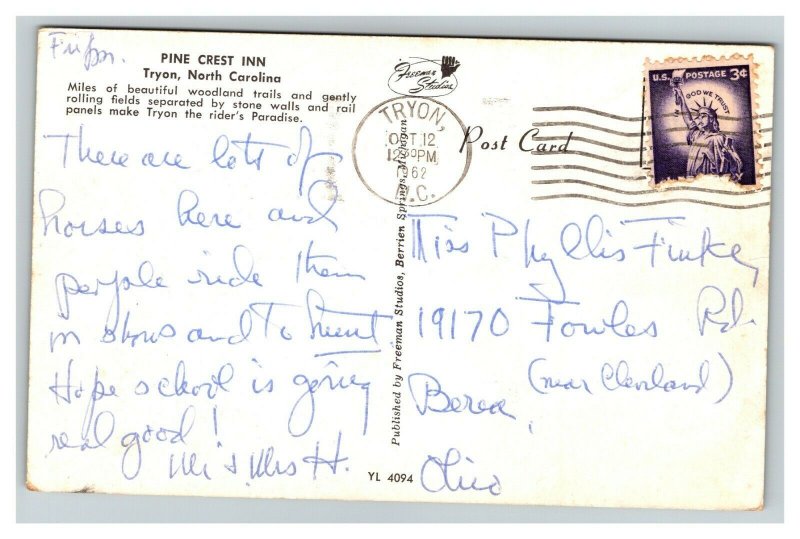 Fri pm.
PINE CREST INN
Tryon, North Carolina
Miles of beautiful woodland trails and gently
rolling fields separated by stone walls and rail
panels make Tryon the rider's Paradise.
There are lots of
horses here and
people ride them
in shows and to hunt.
Hope school is going
real good!
Mr & Mrs H.
Freeman
Studios
Published by Freeman Studios, Berrien Springs, Michigan
YL 4094
TRYON,
OCT 12
12 30 PM
1962
N.C.
Post Card
U.S. POSTAGE 3¢
IN GOD WE TRUST
Miss Phyllis Finkey
19170 Fowles Rd.
(near Cleveland)
Berea,
Ohio